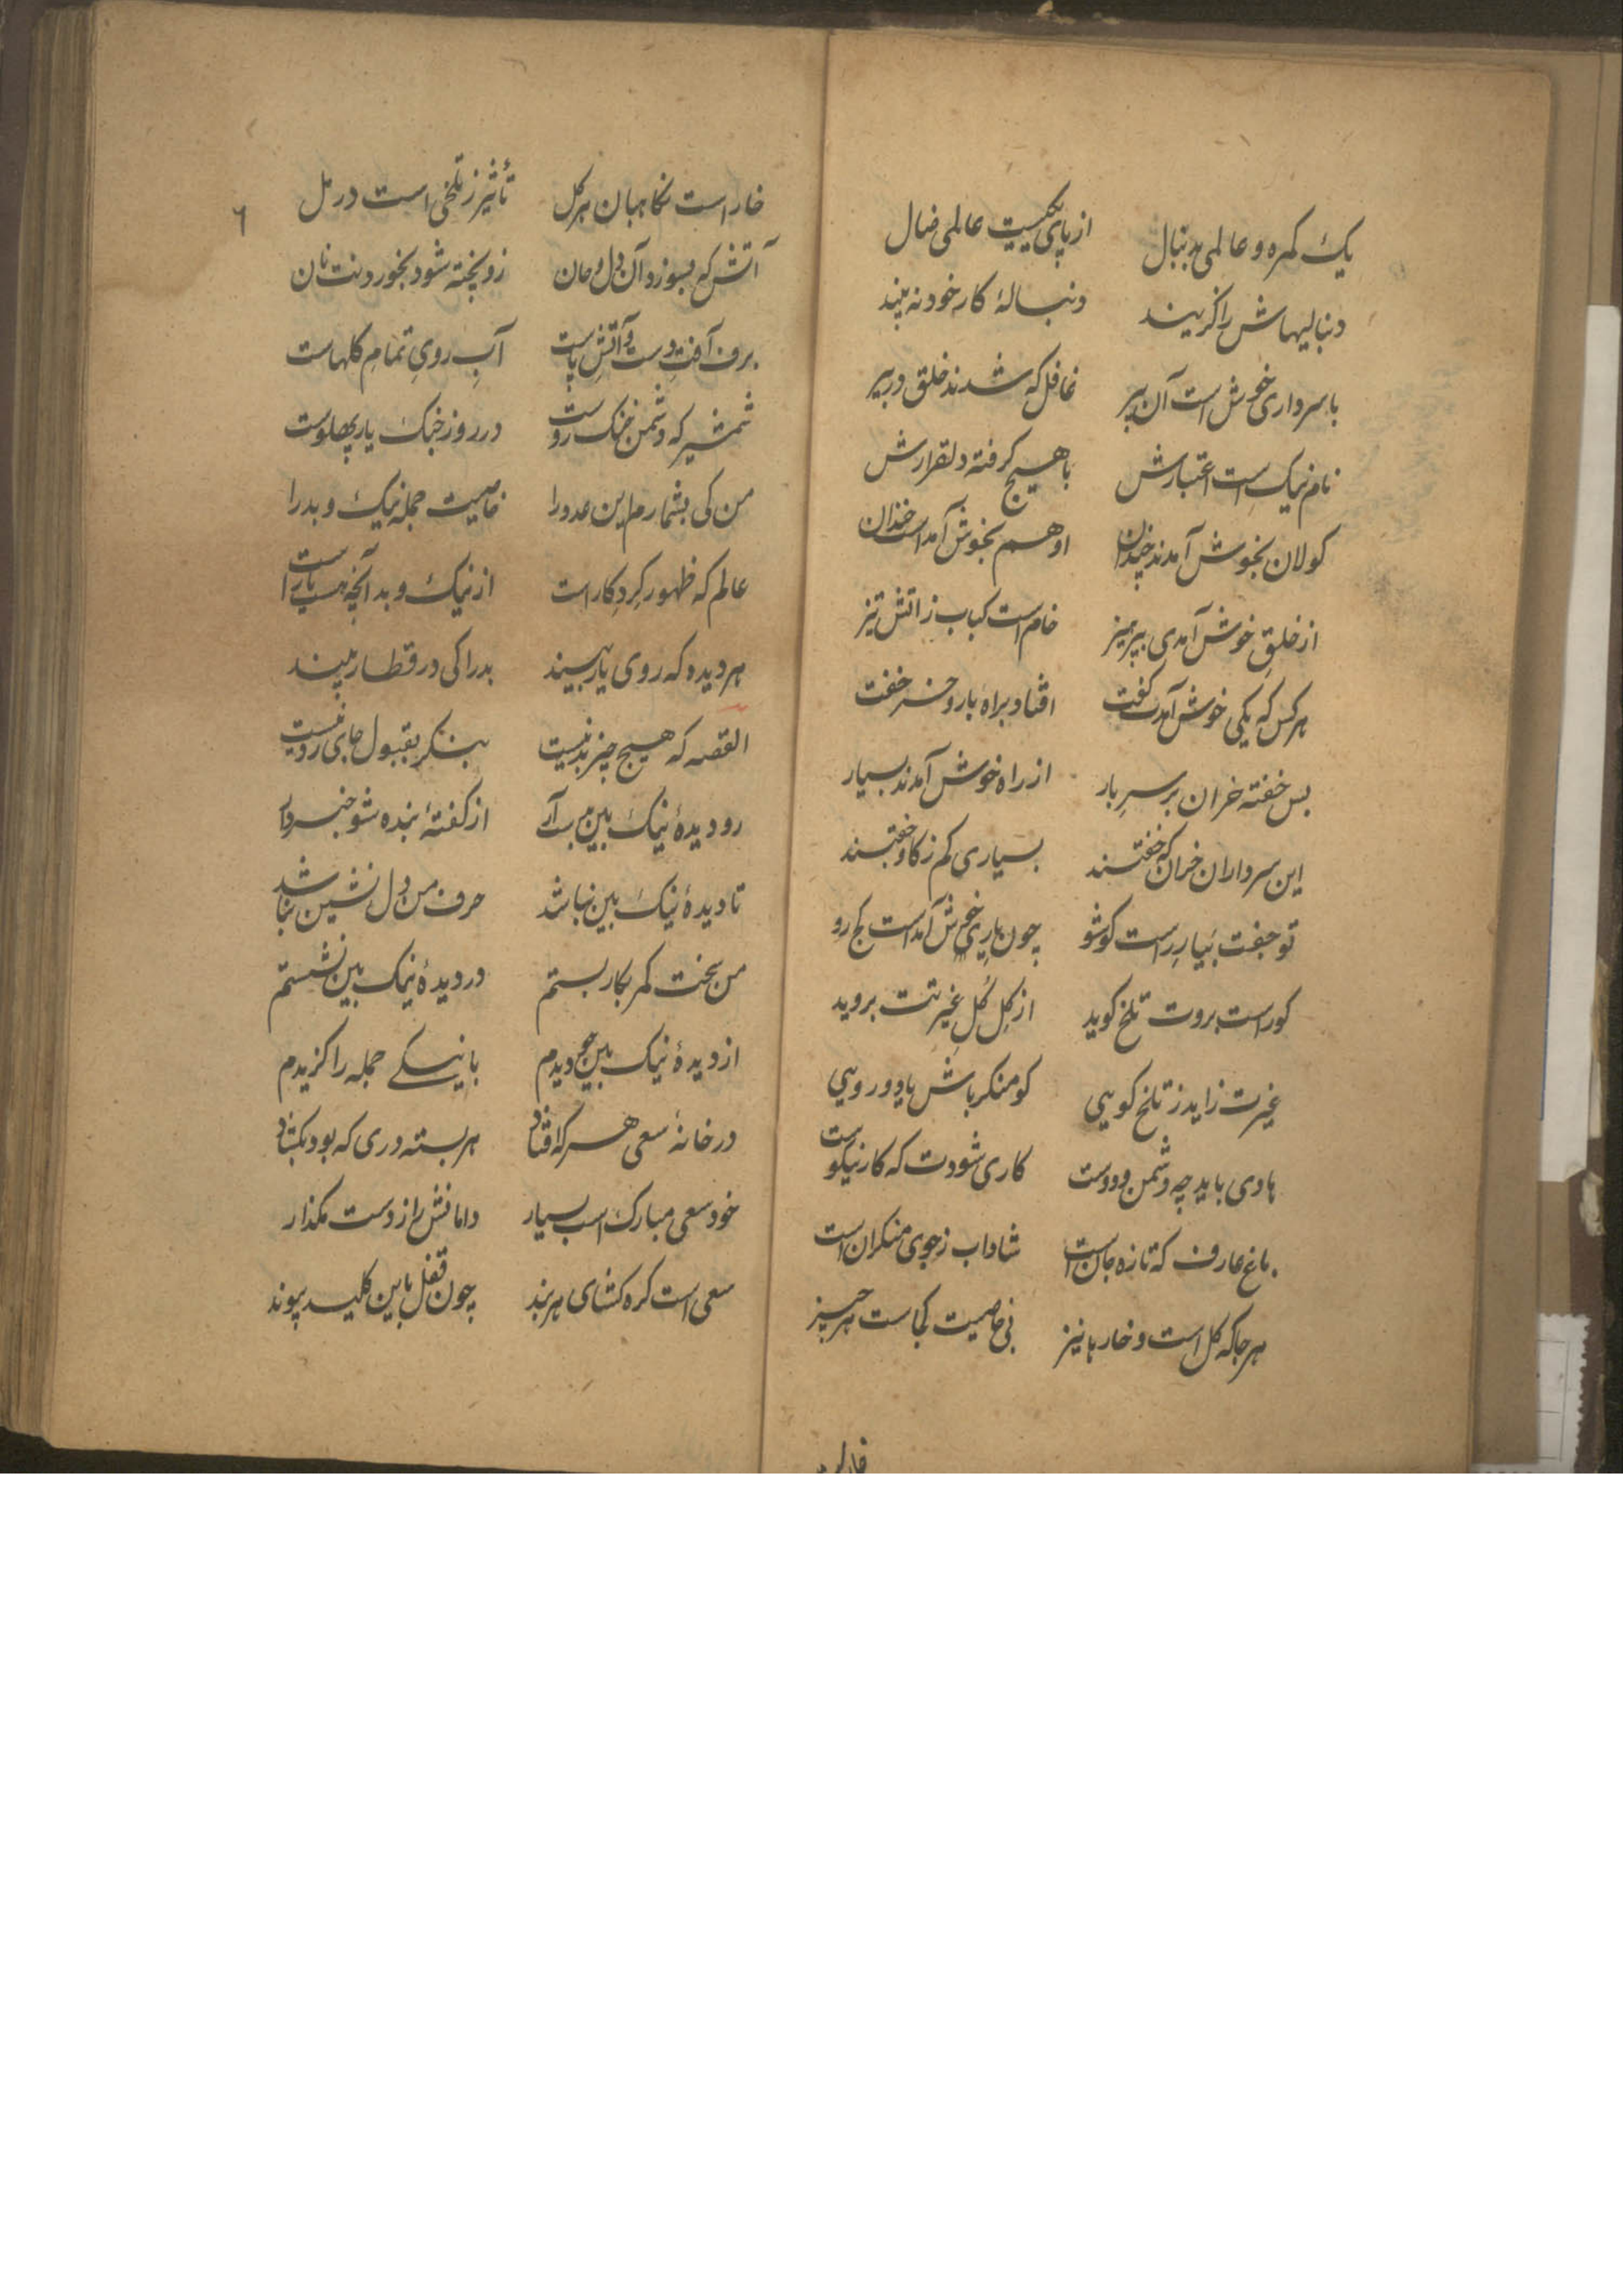 یک کمره و عالمی بدنبال از پای یکیست عالمی ضال
دنبالیهاش را کزینند دنبالهٔ کار خود نه بینند
با سرداری خوش است آن پیر غافل که شدند خلق در بیر
نام نیک است اعتبارش با هیچ گرفته دل قرارش
کولان بخوش آمدند چندان او هم بخوش آمد است خندان
از خلقِ خوش آمدی بپرهیز خام است کباب ز اتش تیز
هر کس که یکی خوش آمدت کفت افتاد براه بار و خر خفت
بس خفته خران بر سرِ بار از راه خوش آمدند بسیار
این سرداران خران که خفتند بسیاری کم ز کاو خفتند
تو جفت بیارِ راست کو شو چون یارِ خوش آمد است کج رو
کو راست بروت تلخ کوید از کِل کُلِ غیرتت بروید
غیرت زاید ز تلخ کویی کو منکر باش یا دورویی
هادی باید چه دشمن و دوست کاری شودت که کار نیکوست
باغ عارف که تازه جان است شاداب ز جوی منکران است
هر جا که کل است و خارها نیز بی خاصیت کجاست هر چیز
خار است نکاهبان هر کل تأثیر ز تلخی است در مل
آتش که بسوزد آن دل و جان زو پخته شود بخوردنت نان
برف آفتِ دست و آتشِ پاست آبِ رویِ تمامِ کلهاست
شمشیر که دشمن خنک روست در روز خنک یار پهلوست
من کی بشمارم این عدو را خاصیت جمله نیک و بد را
عالم که ظهور کردکار است از نیک و بد آنچه هست یار است
هر دیده که روی یار بیند بد را کی در قطار بیند
القصه که هیچ چیز بد نیست بنکر بقبول جای رد نیست
رو دیدهٔ نیک بین بدست آر از کفتهٔ بنده شو خبردار
تا دیدهٔ نیک بین نباشد حرف من دل نشین نباشد
من سخت کمر بکار بستم در دیدهٔ نیک بین نشستم
از دیدهٔ نیک بین چو دیدم با نیکی جمله را کزیدم
در خانهٔ سعی هر که افتاد هر بسته دری که بود بکشاد
خود سعی مبارک است بسیار دامانش را ز دست مکذار
سعی است کره کشای هر بند چون قفل باین کلید پیوند
٦